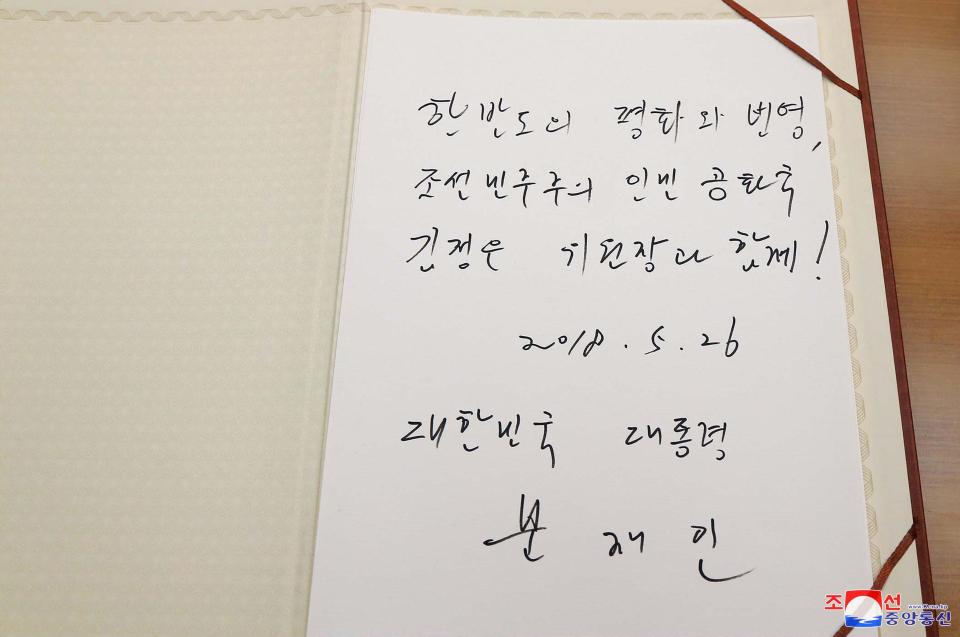 한반도의 평화와 번영,
조선민주주의 인민 공화국
김정은 위원장과 함께!
2018. 5. 26
대한민국 대통령
문재인
조선
www.kcna.kp
중앙통신